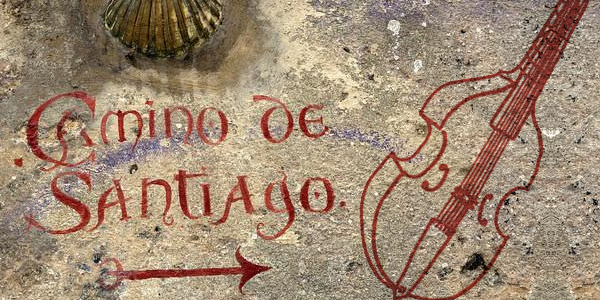 Camino de
Santiago.